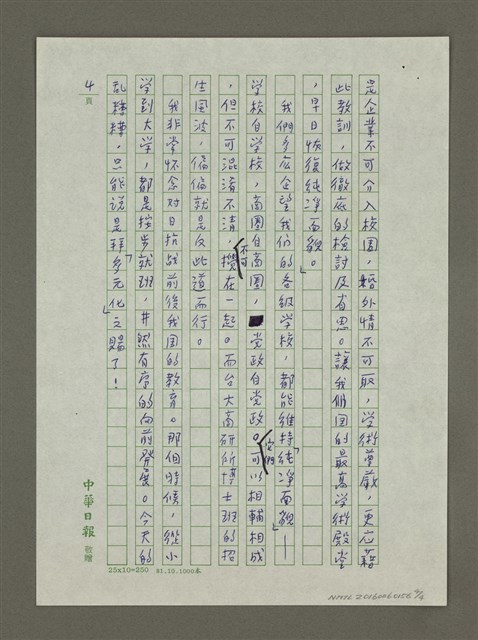 是企業不可介入校園，婚外情不可取，学術尊嚴，更应藉
此教訓，做徹底的檢討及省思。讓我们国的最高学術殿堂
，早日恢復純净面貌。」
我們多么企望我们的各級学校，都能維持「純净面貌」—
学校自学校，商圈自商圈，党政自党政。它們可以相輔相成
，但不可混淆不清，不可攪在一起。而台大商研所博士班的招
生風波，偏偏就是反此道而行。
我非常怀念对日抗战前後我国的教育。那個時候，從小
学到大学，都是按步就班，井然有序的向前発展。今天的
乱糟糟，只能说是拜「多元化」之賜了！
4
頁
中華日報 敬贈
25x10=250 81.10.1000本